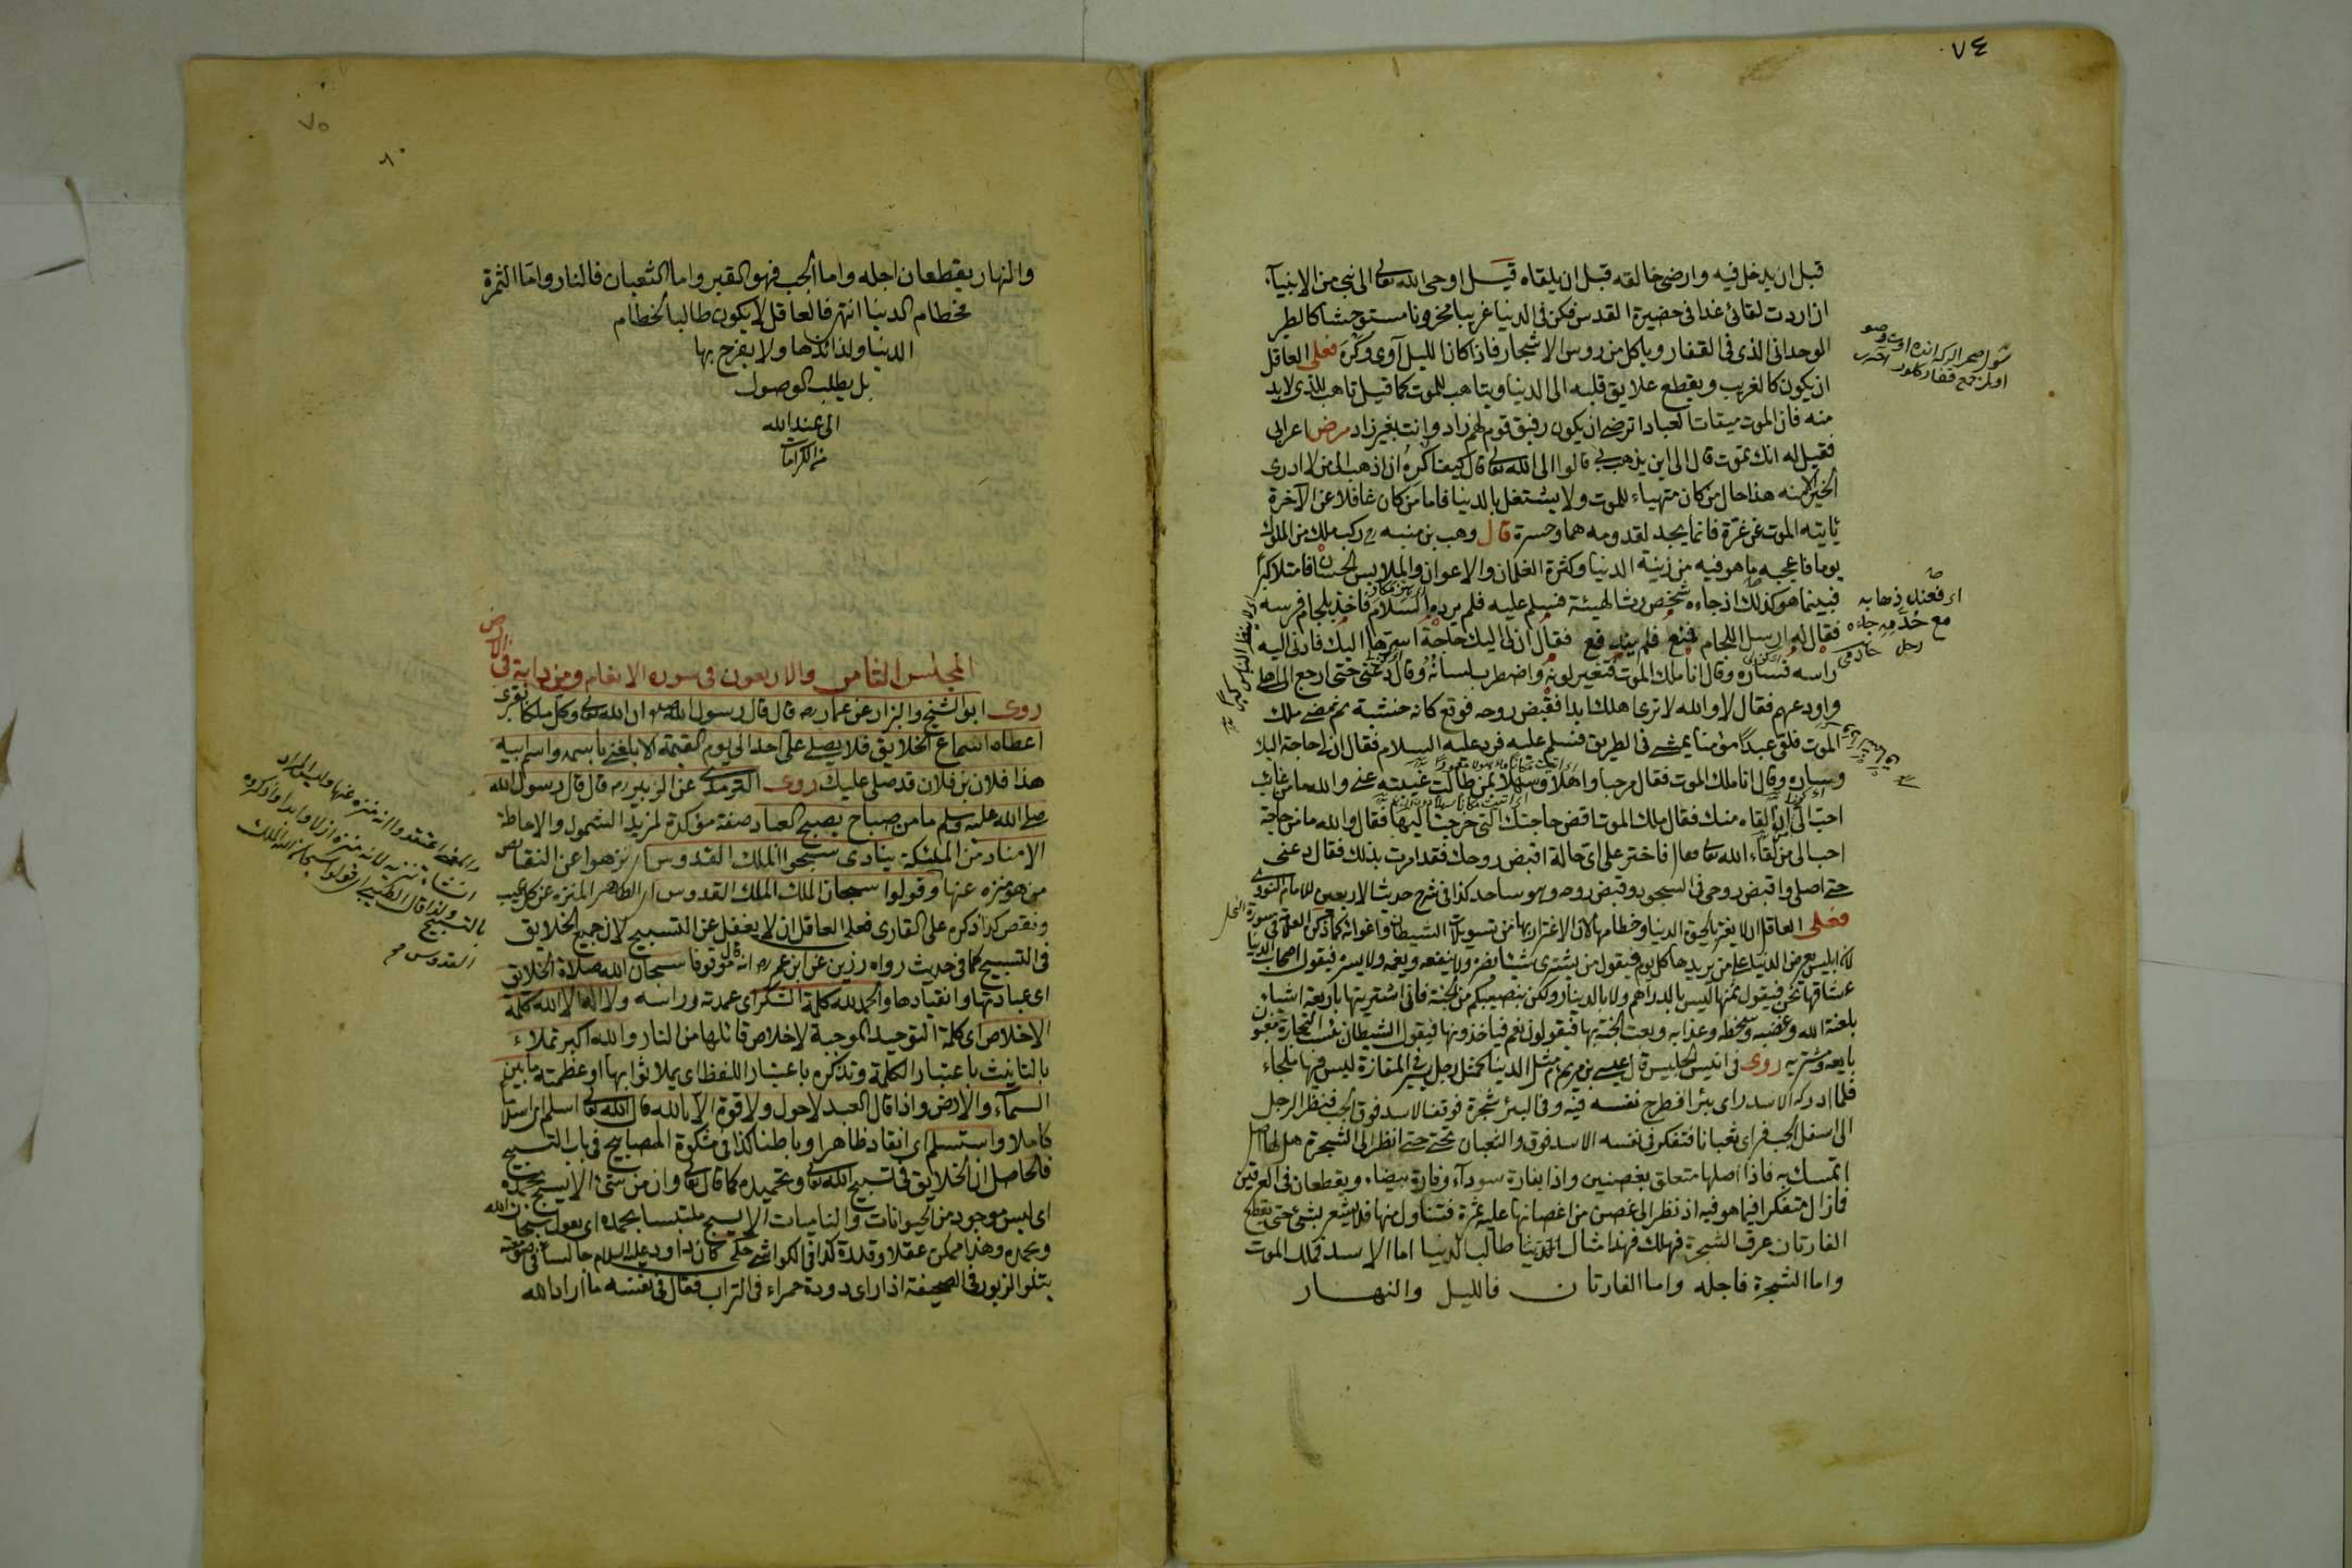 ٧٤
قبل ان يدخل فيه وارضى خالقه قبل ان يلقاه قيل اوحى الله تعالى الى نبي من الانبيآء
ان اردت لقائى غدا فى حضيرة القدس فكن فى الدنيا غريبا محزونا مستوحشا كالطير
الوحدانى الذى فى القفار وياكل من روس الاشجار فاذا كان الليل آوى وكره فعلى العاقل
ان يكون كالغريب ويقطع علايق قلبه الى الدنيا ويتاهب للموت كما قيل تاهب للذى لا بد
منه فان الموت ميقات العباد اترضى ان يكون رفيق قوم لهم زاد وانت بغير زاد مرض اعرابى
فقيل له انك تموت قال الى اين يذهب بى قالوا الى الله تعالى قال كيف اكره ان اذهب الى من لا ادرى
الخير الا منه هذا حال من كان متهياء للموت ولا يشتغل بالدنيا فاما من كان غافلا عن الآخرة
ياتيه الموت عن غرة فانما يجد لقدومه هما وحسرة قال وهب بن منبه ركب ملك من الملوك
يوما فاعجبه ما هو فيه من زينة الدنيا وكثرة الغلمان والاعوان والملابس الحسان فامتلا كبرا
فبينما هو كذلك اذ جاءه شخص رث الهيئة فسلم عليه فلم يرد السلام فاخذ بلجام فرسه
فقال له ارسل اللجام فقال ان لى اليك حاجة اسرها اليك فادنى اليه
راسه فساره وقال انا ملك الموت فتغير لونه واضطرب لسانه وقال دعنى حتى ارجع الى اهلى
واودعهم فقال لا والله لا ترى اهلك ابدا فقبض روحه فوقع كانه خشبة ثم مضى ملك
الموت فلقى عبدا مؤمنا يمشى فى الطريق فسلم عليه فرد عليه السلام فقال ان لى حاجة اليك
وساره وقال انا ملك الموت فقال مرحبا واهلا وسهلا بمن طالت غيبته عنى والله ما من غائب
احب الى ان القاه منك فقال ملك الموت اقض حاجتك التى خرجت اليها فقال والله ما من حاجة
احب الى من لقاء الله تعالى فقال فاختر على اى حالة اقبض روحك فقد امرت بذلك فقال دعنى
حتى اصلى واقبض روحى فى السجود وقبض روحه وهو ساجد كذا فى شرح حديث الاربعين للامام النووى
فعلى العاقل ان لا يغتر بالحيوة الدنيا وحطامها لان الاغترار بها من تسويلات الشيطان واغوائه
لان ابليس يعرض الدنيا على من يريدها كل يوم فيقول من يشترى شيئا يضره ولا ينفعه ويغمه ولا يسره فيقول اصحاب الدنيا
عشاقها نحن فيقول ثمنها ليس بالدراهم ولا بالدينار ولكن بنصيبكم من الجنة فانى اشتريتها باربعة اشياء
بلعنة الله وغضبه وسخطه وعذابه وبعت الجنة بها فيقولون نعم فياخذونها فيقول الشيطان بئست التجارة
بايعه ومشتريه روى فى انيس الجليس قال عيسى بن مريم مثل الدنيا كمثل رجل يسير فى المفازة ليس فيها ملجاء
فلما ادركه الاسد راى بئرا فطرح نفسه فيه وفى البئر شجرة فوقف الاسد فوق الجب فنظر الرجل
الى اسفل الجب فراى ثعبانا فتفكر فى نفسه الاسد فوق والثعبان تحتى حتى انظر الى الشجرة هل لها اصل
اتمسك به فاذا اصلها متعلق بغصنين واذا بفارة سوداء وفارة بيضاء ويقطعان فى العرقين
فازال متفكرا فيما هو فيه اذ نظر الى غصن من اغصانها عليه ثمرة فتناول منها فلا يشعر بشئ حتى يقطع
الفارتان عرق الشجرة فهلك فهذا مثال الدنيا طالب الدنيا اما الاسد فملك الموت
واما الشجرة فاجله واما الفارتان فالليل والنهار
اى فعند ذهابه
مع خدمه جاءه
رجل
٧٥
والنهار يقطعان اجله واما الجب فهو القبر واما الثعبان فالنار واما الثمرة
فحطام الدنيا انتهى فالعاقل لا يكون طالبا لحطام
الدنيا ولذائذها ولا يفرح بها
بل يطلب الوصول
الى عند الله
من الكرامات
المجلس الثامن والاربعون فى سورة الانعام وما من دابة فى الارض
روى ابو الشيخ والبزار عن عمار رض قال قال رسول الله صلعم ان الله تعالى وكل ملكا بقبرى
اعطاه اسماع الخلايق فلا يصلى على احد الى يوم القيمة الا بلغنى باسمه واسم ابيه
هذا فلان بن فلان قد صلى عليك روى الترمذى عن الزبير رض قال قال رسول الله
صلى الله عليه وسلم ما من صباح يصبح العباد صفة مؤكدة لمزيد الشمول والاحاطة
الا مناد من الملئكة ينادى سبحوا الملك القدوس اى نزهوا عن النقايص
من هو منزه عنها وقولوا سبحان الملك الملك القدوس اى الطاهر المنزه عن كل عيب
ونقص كذا ذكره على القارى فعلى العاقل ان لا يغفل عن التسبيح لان جميع الخلايق
فى التسبيح كما فى حديث رواه رزين عن ابن عمر رض انه قال موقوفا سبحان الله صلاة الخلايق
اى عبادتها وانقيادها والحمد لله كلمة الشكر اى عمدته وراسه ولا اله الا الله كلمة
الاخلاص اى كلمة التوحيد الموجبة لاخلاص قائلها من النار والله اكبر تملاء
بالتانيث باعتبار الكلمة وتذكره باعتبار اللفظ اى يملا ثوابها او عظمته ما بين
السماء والارض واذا قال العبد لا حول ولا قوة الا بالله قال الله تعالى اسلم اى اسلاما
كاملا واستسلم اى انقاد ظاهرا وباطنا كذا فى مشكوة المصابيح فى باب التسبيح
فالحاصل ان الخلايق فى تسبيح الله تعالى وتحميده كما قال تعالى وان من شئ الا يسبح بحمده
اى ليس موجود من الحيوانات والناميات الا يسبح ملتبسا بحمده اى يقول سبحان الله
وبحمده وهذا ممكن عقلا وقدرة كذا فى الكواشى حكى كان داود عليه السلام جالسا فى صومعته
يتلو الزبور فى الصحيفة اذا راى دودة حمراء فى التراب فقال فى نفسه ما اراد الله